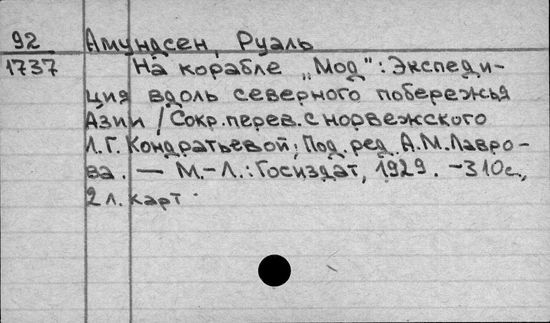 92 Амундсен, Руаль
1737 На корабле „Мод": Экспеди-
ция вдоль северного побережья
Азии / Сокр. перев. с норвежского
Л.Г. Кондратьевой; Под. ред. А.М. Лавро-
ва. — М.-Л.: Госиздат, 1929. -310с.,
2 л. карт